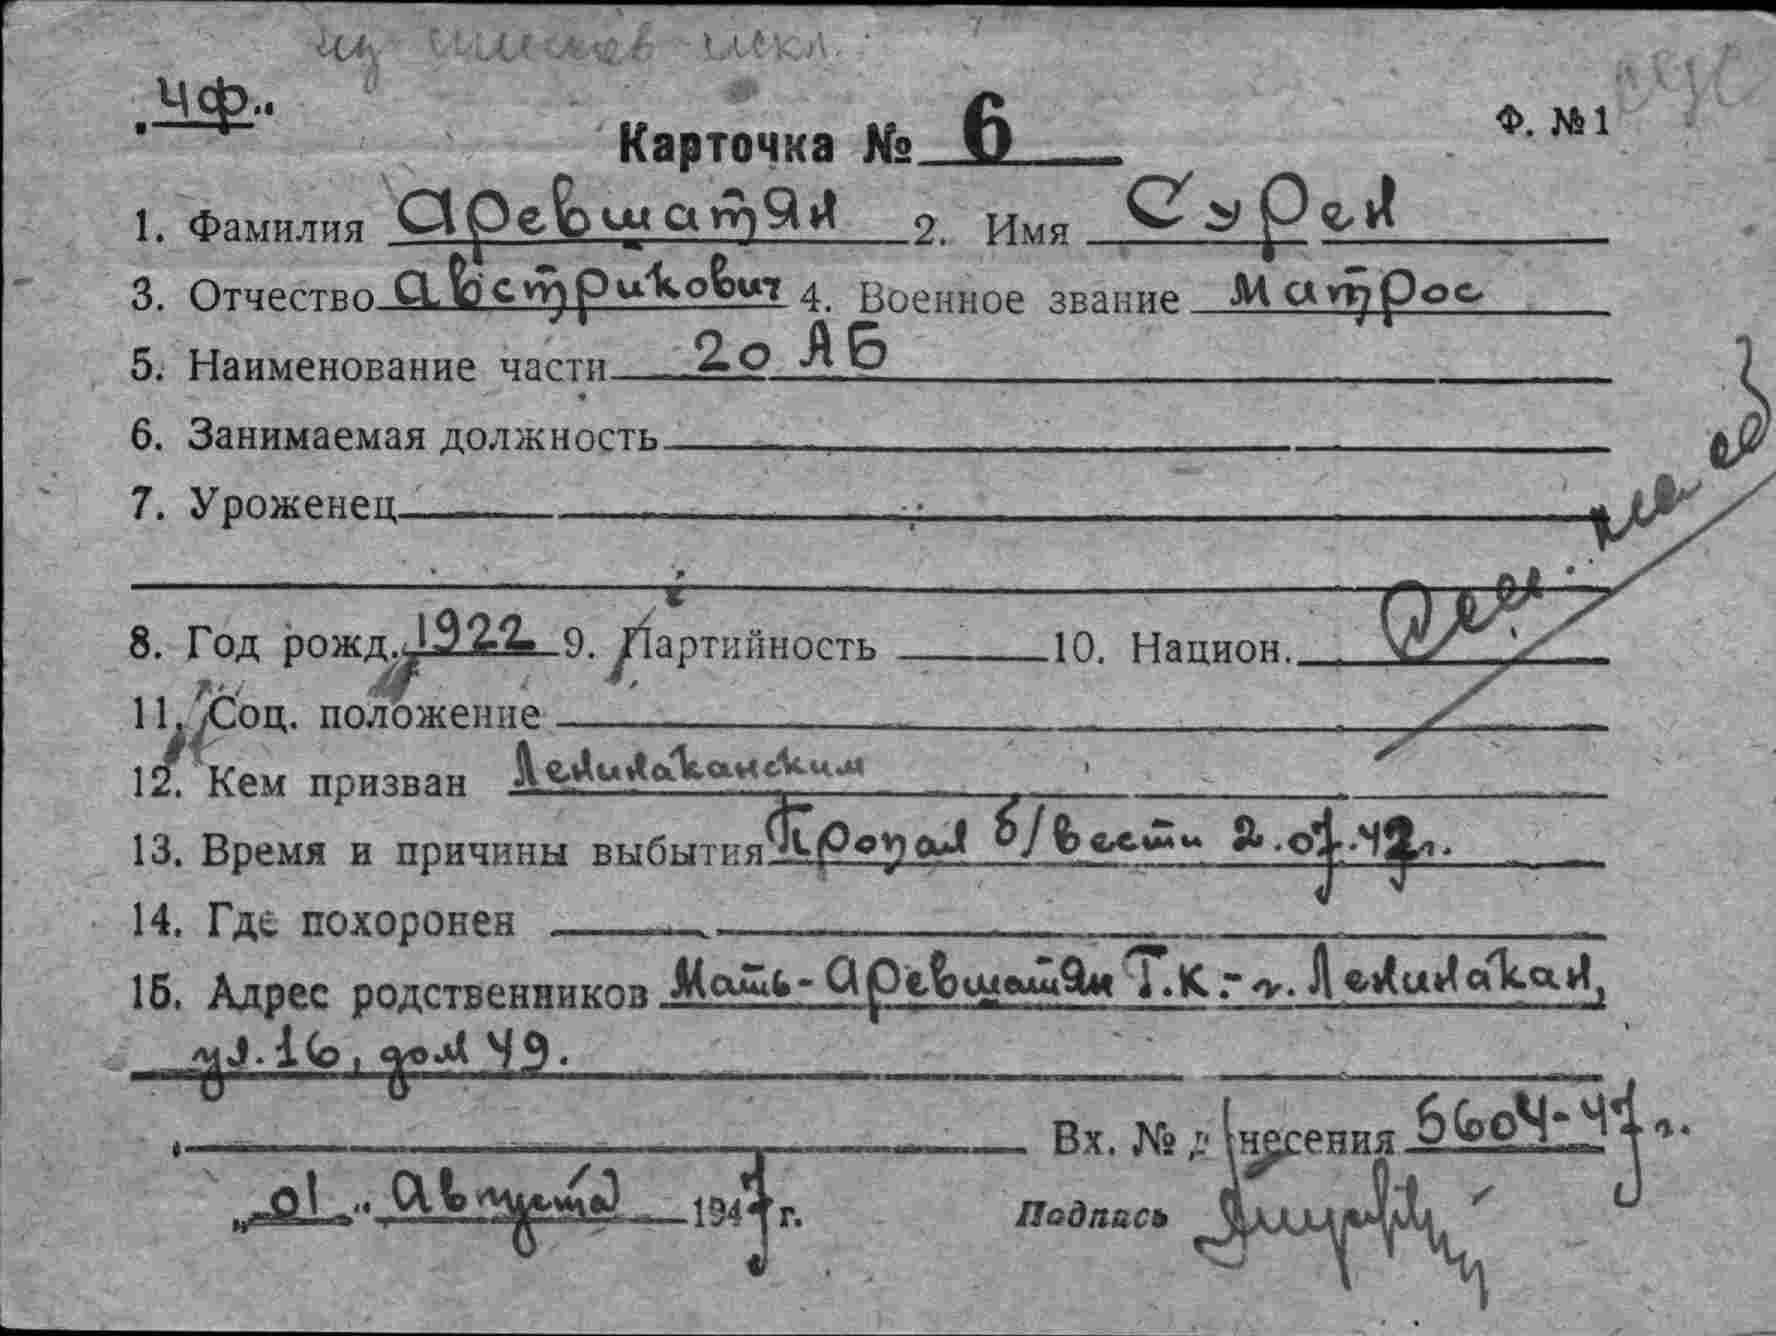 из списков искл.
"ЧФ"
Карточка № 6
Ф. №1
1. Фамилия Аревшатян 2. Имя Сурен
3. Отчество Австрикович 4. Военное звание Матрос
5. Наименование части 20 АБ
6. Занимаемая должность
7. Уроженец
8. Год рожд. 1922 9. Партийность 10. Национ.
11. Соц. положение
12. Кем призван Ленинаканским
13. Время и причины выбытия Пропал б/вести 2.07.42г.
14. Где похоронен
15. Адрес родственников Мать - Аревшатян Т.К. - г. Ленинакан,
ул. 16, дом 49.
Вх. № донесения 5604-47г.
"01" Августа 1947 г. Подпись